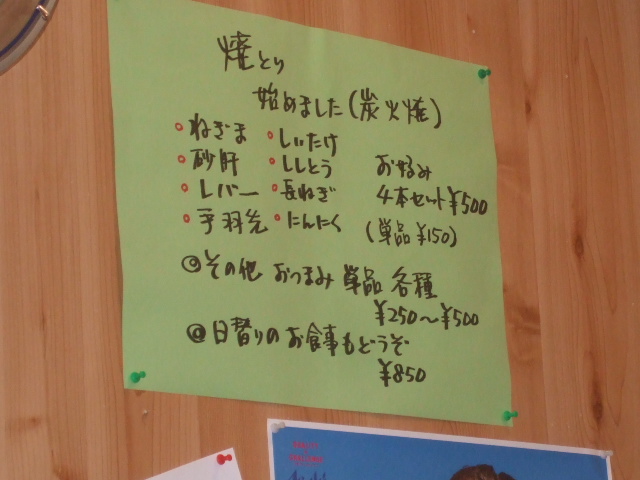 焼とり
始めました(炭火焼)
ねぎま
砂肝
レバー
手羽先
しいたけ
ししとう
長ねぎ
にんにく
お好み
4本セット¥500
(単品¥150)
◎その他 おつまみ 単品 各種
¥250〜¥500
◎日替りのお食事もどうぞ
¥850